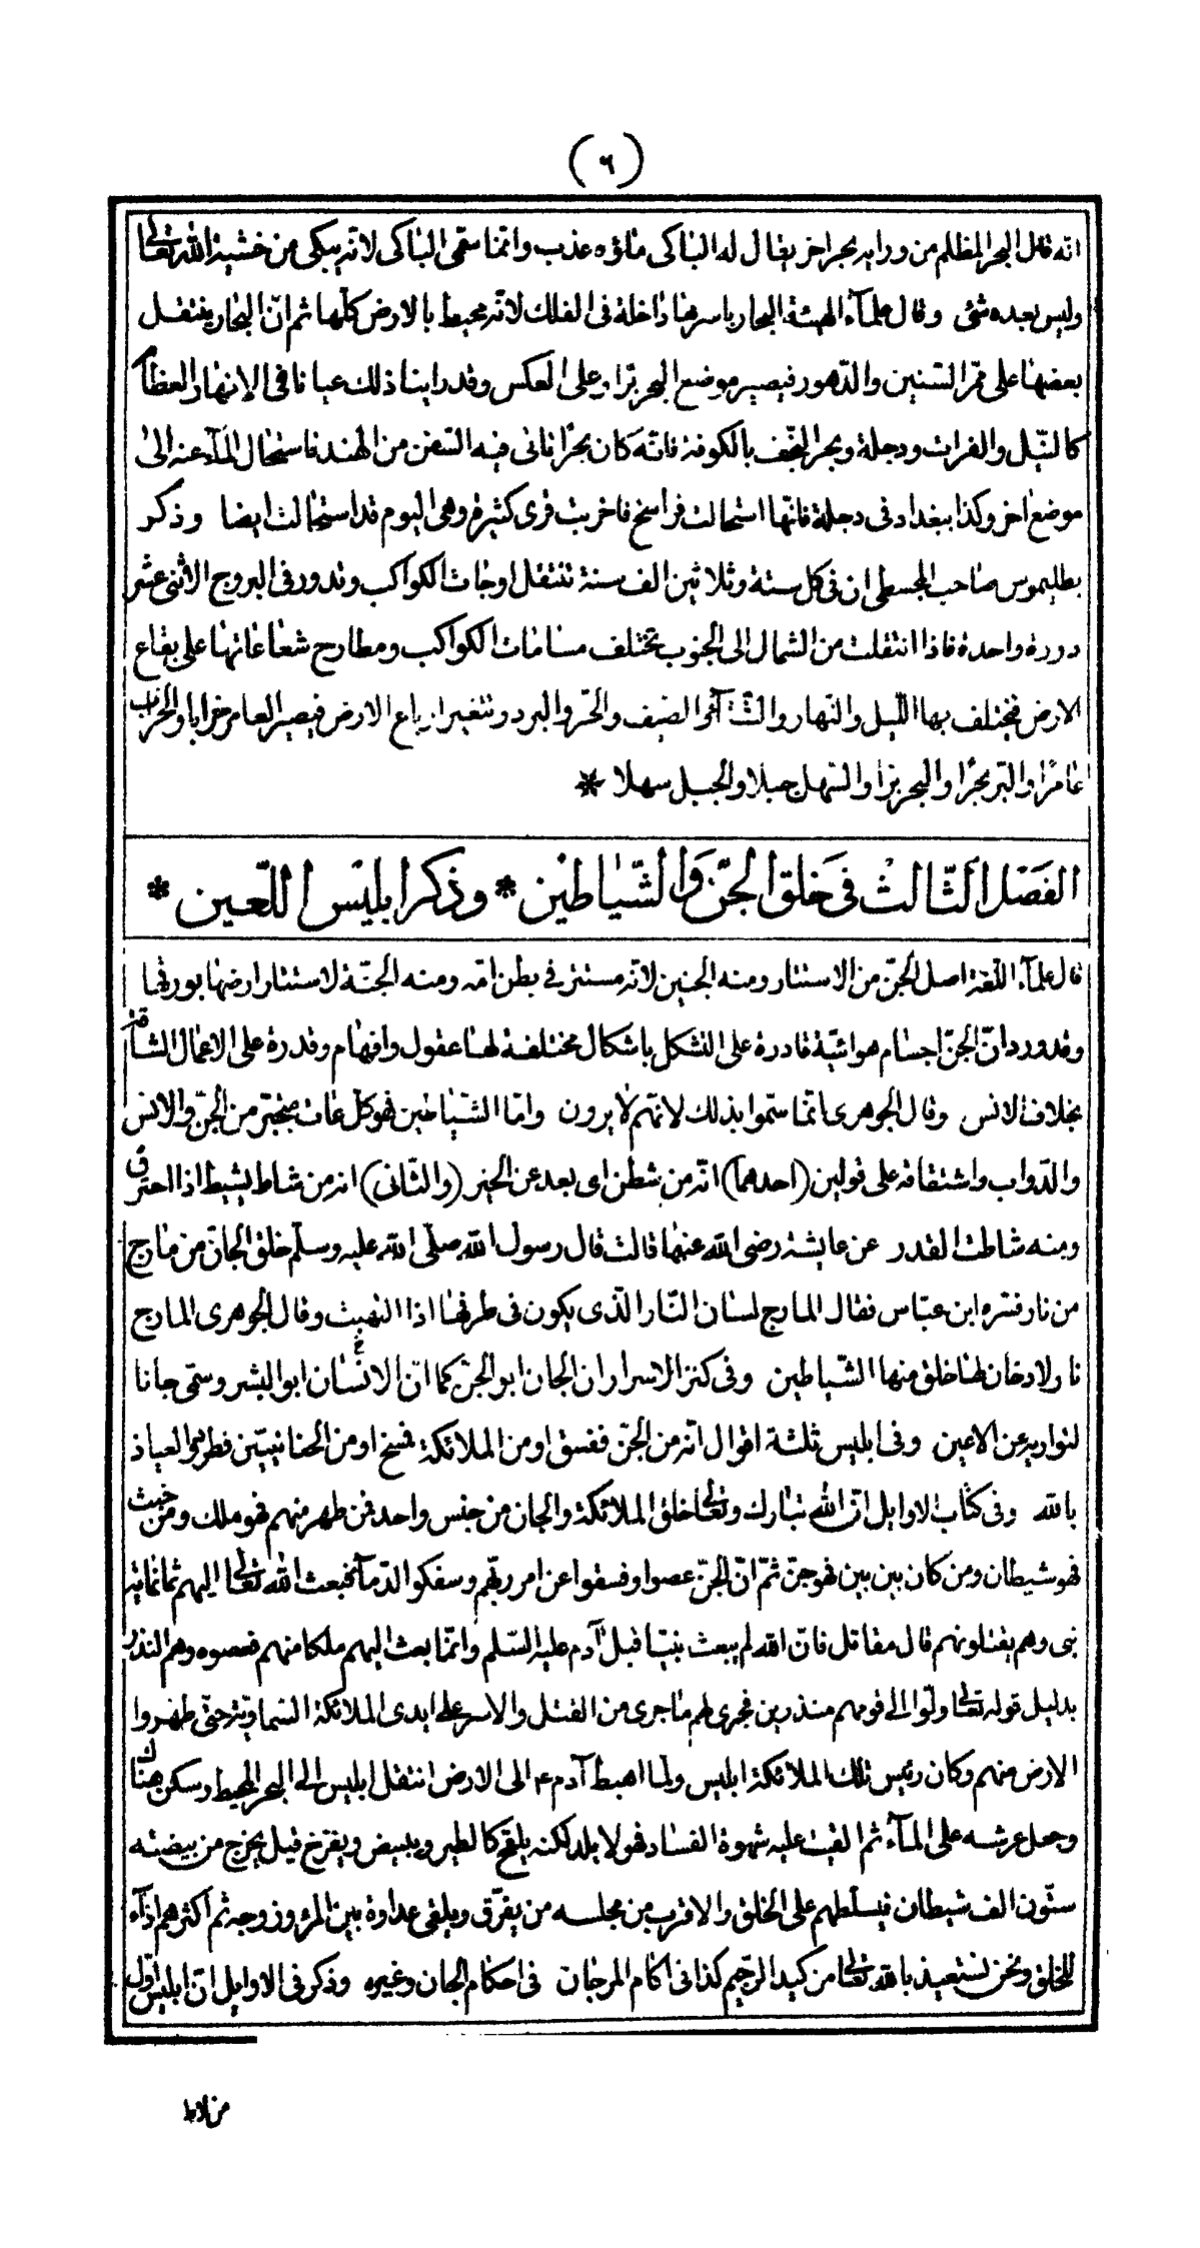 (٦)
انه قال البحر المظلم من ورايه بحر اخر يقال له الباكى ماؤه عذب وانما سمى الباكى لانه يبكى من خشية الله تعالى
وليس بعده شئ وقال علمآء الهيئة البحار باسرها داخلة فى الفلك لانه محيط بالارض كلها ثم ان البحار ينتقل
بعضها على ممر السنين والدهور فيصير موضع البحر برا وعلى العكس وقد راينا ذلك عيانا فى الانهار العظام
كالنيل والفرات ودجلة وبحر النجف بالكوفة فانه كان بحرا تاتى فيه السفن من الهند فاستحال المآء عنه الى
موضع اخر وكذا ببغداد فى دجلة فانها استحالت فراسخ فاخربت قرى كثيرة وهى اليوم قد استحالت ايضا وذكر
بطليموس صاحب المجسطى ان فى كل ستة وثلاثين الف سنة تنتقل اوجات الكواكب وتدور فى البروج الاثنى عشر
دورة واحدة فاذا انتقلت من الشمال الى الجنوب تختلف مسامات الكواكب ومطارح شعاعاتها على بقاع
الارض فيختلف بها الليل والنهار والشتآء والصيف والحر والبرد وتتغير ارباع الارض فيصير العامر خرابا والخراب
عامرا والبر بحرا والبحر برا والسهل جبلا والجبل سهلا *
الفصل الثالث فى خلق الجن والشياطين * وذكر ابليس اللعين *
قال علمآء اللغة اصل الجن من الاستتار ومنه الجنين لانه مستتر فى بطن امه ومنه الجنة لاستتار ارضها بورقها
وقد ورد ان الجن اجسام هوائية قادرة على التشكل باشكال مختلفة لها عقول وافهام وقدرة على الاعمال الشاقة
بخلاف الانس وقال الجوهرى انما سموا بذلك لانهم لا يرون واما الشياطين فهو كل عات متجبر من الجن والانس
والدواب واشتقاقه على قولين (احدهما) انه من شطن اى بعد عن الخير (والثانى) انه من شاط يشيط اذا احترق
ومنه شاطت القدر عن عايشة رضى الله عنها قالت قال رسول الله صلى الله عليه وسلم خلق الجان من مارج
من نار فسره ابن عباس فقال المارج لسان النار الذى يكون فى طرفها اذا التهبت وقال الجوهرى المارج
نار لا دخان لها خلق منها الشياطين وفى كنز الاسرار ان الجان ابو الجن كما ان الانسان ابو البشر وسمى جانا
لتواريه عن الاعين وفى ابليس ثلثة اقوال انه من الجن ففسق او من الملائكة فمسخ او من الجنانيين فطرد والعياذ
بالله وفى كتاب الاوايل ان الله تبارك وتعالى خلق الملائكة والجان من جنس واحد فمن طهر منهم فهو ملك ومن خبث
فهو شيطان ومن كان بين بين فهو جن ثم ان الجن عصوا وفسقوا عن امر ربهم وسفكوا الدمآء فبعث الله تعالى اليهم ثمانماية
نبى وهم يقتلونهم قال مقاتل فان الله لم يبعث نبيا قبل آدم عليه السلم وانما بعث اليهم ملكا منهم فعصوه وهم النذر
بدليل قوله تعالى ولوا الى قومهم منذرين فجرى لهم ما جرى من القتل والاسر على ايدى الملائكة السماوية حتى طهروا
الارض منهم وكان رئيس تلك الملائكة ابليس ولما اهبط آدم ع م الى الارض انتقل ابليس الى البحر المحيط وسكن هناك
وجعل عرشه على المآء ثم القيت عليه شهوة الفساد فهو لا يلد لكنه يلقح كالطير ويبيض ويفرخ قيل يخرج من بيضته
ستون الف شيطان فيسلطهم على الخلق والاقرب من مجلسه من يفرق ويلقى عداوة بين المرؤ وزوجه ثم اكثرهم اذآء
للخلق ونحن نستعيذ بالله تعالى من كيد الرجيم كذا فى اكام المرجان فى احكام الجان وغيره وذكر فى الاوايل ان ابليس اول
من لاط